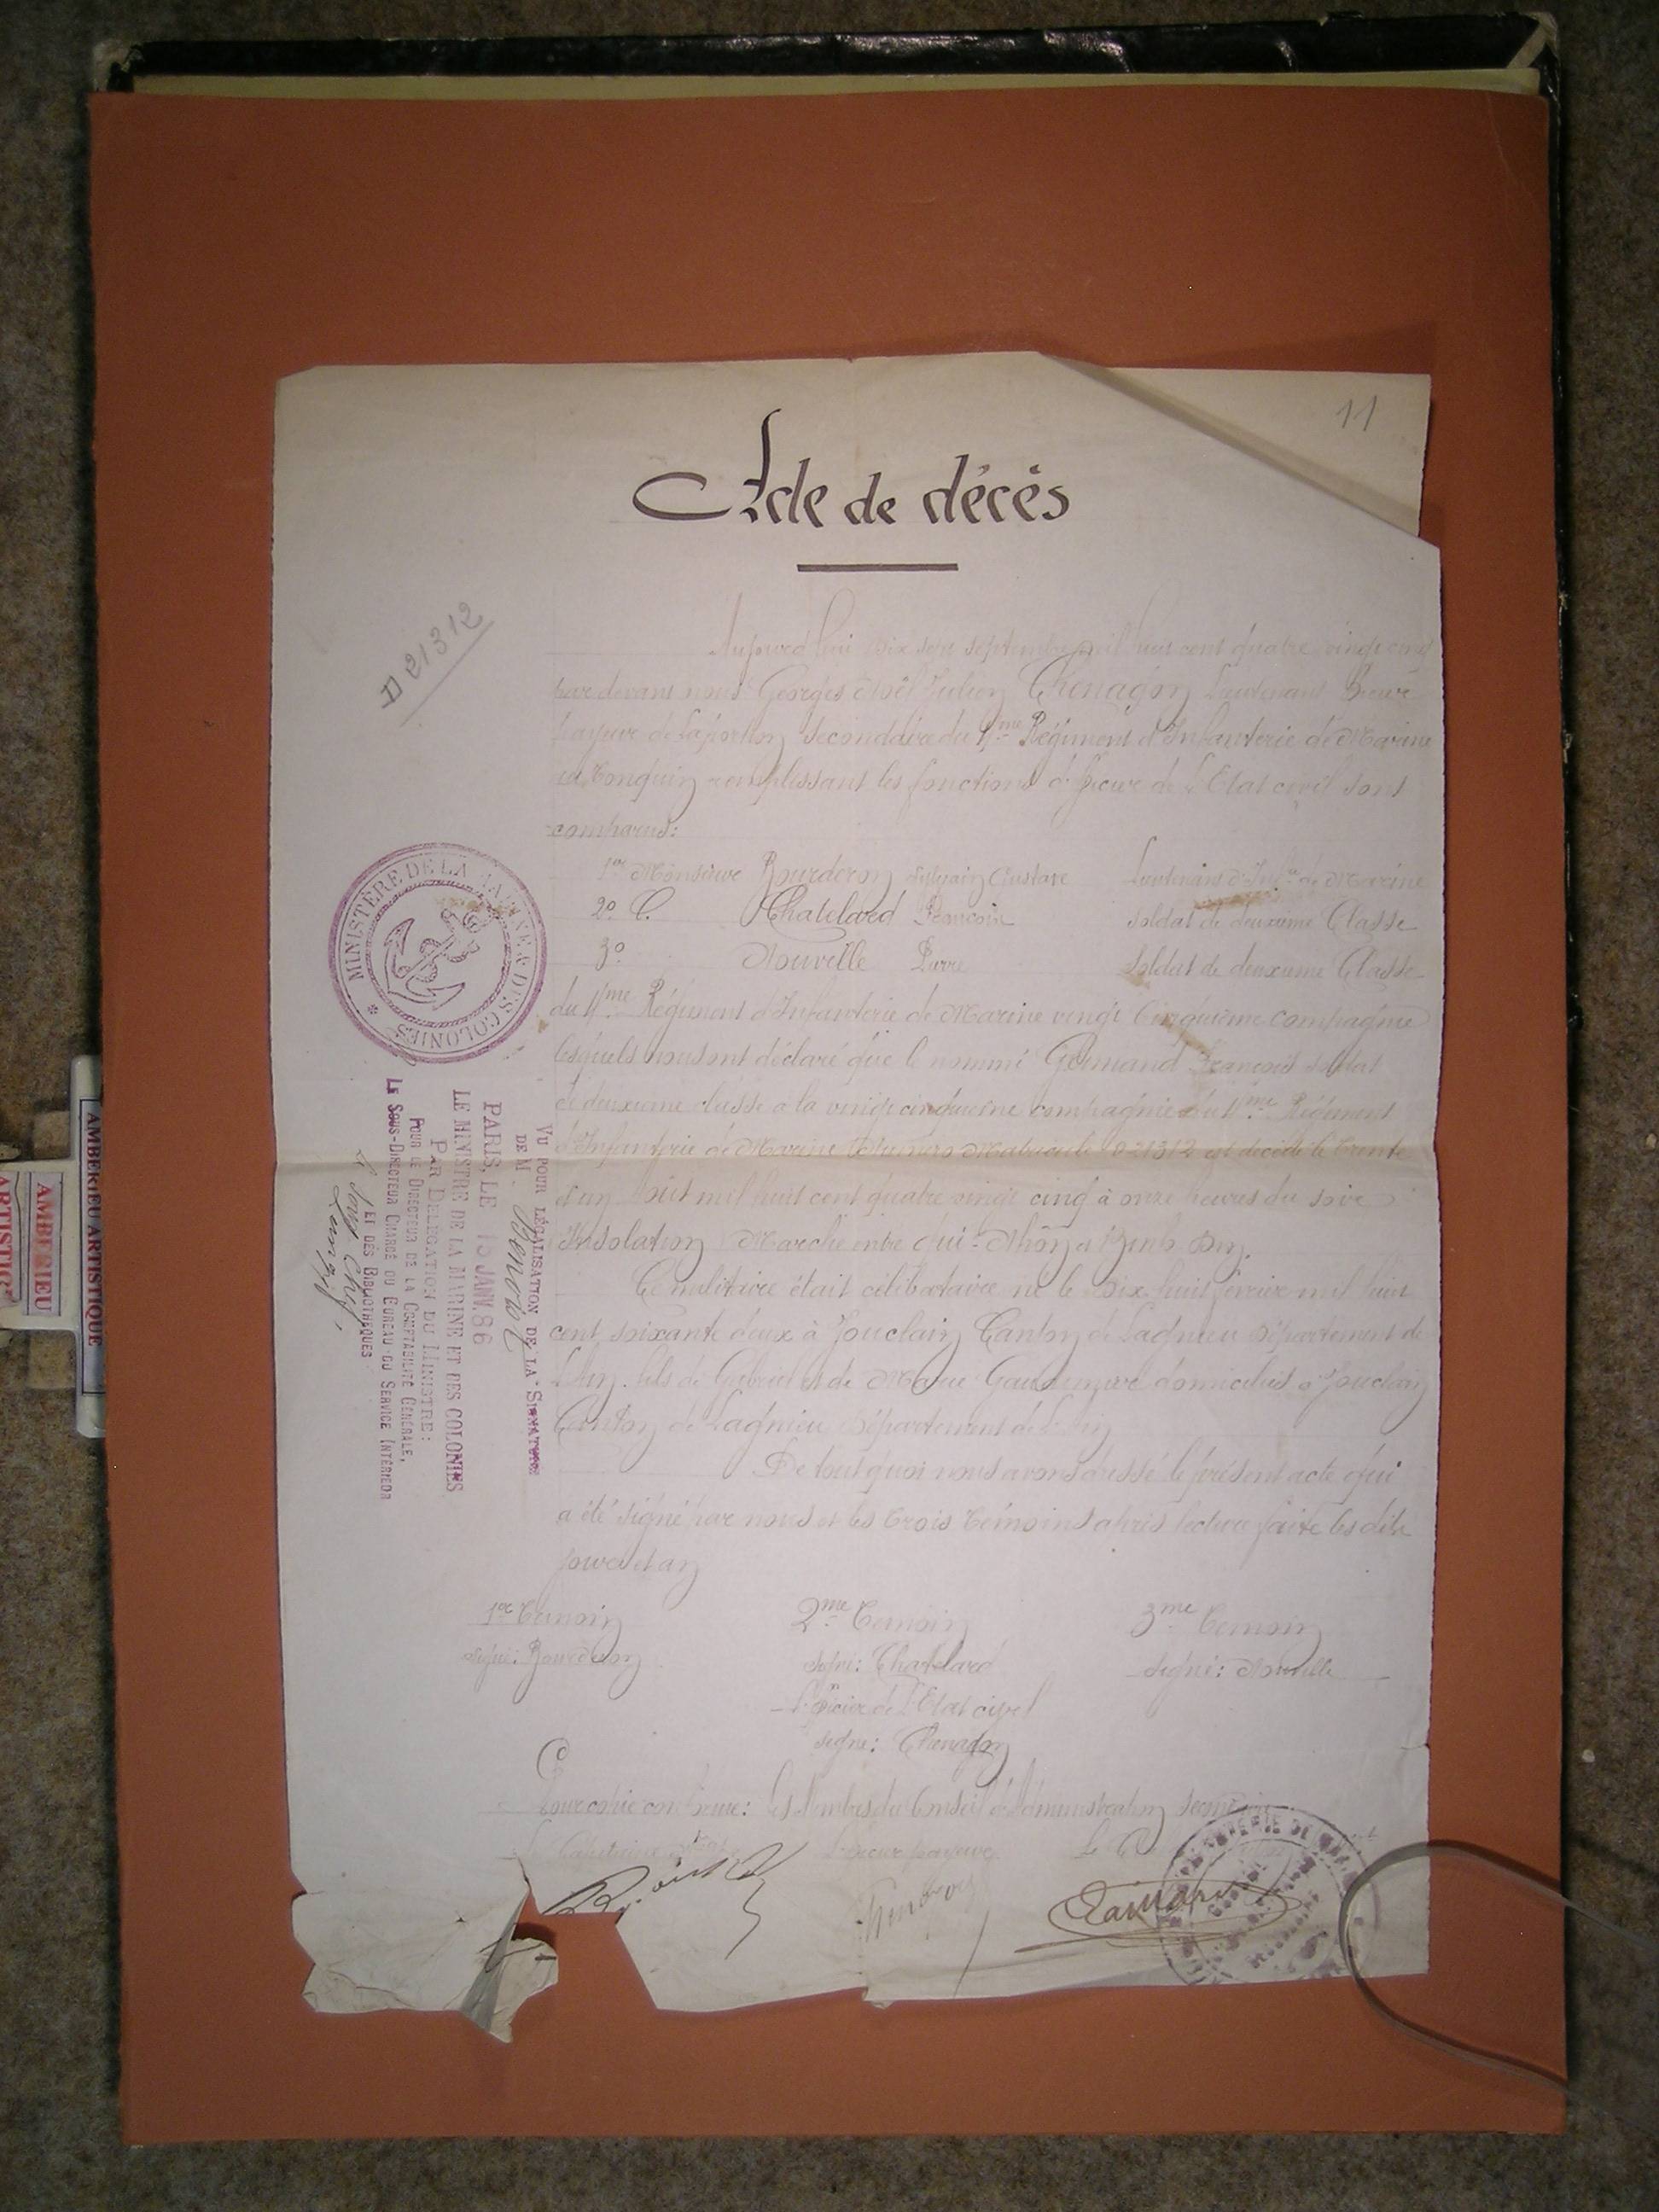 11
Acte de décès
D 21312
Aujourd'hui dix sept septembre mil huit cent quatre vingt cinq
par devant nous Georges Noël Julien Chenagon Lieutenant
secondaire du 4me Régiment d'Infanterie de Marine
au Tonquin remplissant les fonctions d'officier de l'Etat civil sont
comparus:
1er Monsieur Bourderon Sylvain Gustave Lieutenant d'Infie de Marine
2o Chatelard François soldat de deuxième Classe
3o Nouville Pierre Soldat de deuxième Classe
du 4me Régiment d'Infanterie de Marine vingt Cinquième compagnie
lesquels nous ont déclaré que le nommé François soldat
de deuxième classe à la vingt cinquième compagnie du 4me Régiment
d'Infanterie de Marine Numéro Matricule 21312 est décédé le trente
et un août mil huit cent quatre vingt cinq à onze heures du soir
Insolation Marche entre
Ce militaire était célibataire né le dix huit février mil huit
cent soixante deux à Souclain Canton de Lagnieu Département de
l'Ain fils de Gabriel et de Marie domiciliés à Souclain
Canton de Lagnieu Département de l'Ain
De tout quoi nous avons dressé le présent acte qui
a été signé par nous et les trois témoins après lecture faite les dits
jour et an
1er Témoin 2me Témoin 3me Témoin
signé: Bourderon signé: Chatelard signé: Nouville
L'officier de l'Etat civil
signé: Chenagon
Pour copie conforme: Les Membres du Conseil d'Administration
Le Capitaine
MINISTÈRE DE LA MARINE & DES COLONIES
VU POUR LÉGALISATION DE LA SIGNATURE
DE M. Benoist
PARIS, LE 15 JANV. 86
LE MINISTRE DE LA MARINE ET DES COLONIES
PAR DÉLÉGATION DU MINISTRE:
POUR LE DIRECTEUR DE LA COMPTABILITÉ GÉNÉRALE,
LE SOUS-DIRECTEUR CHARGÉ DU BUREAU DU SERVICE INTÉRIEUR
ET DES BIBLIOTHÈQUES
Le Sous Chef,
AMBERIEU ARTISTIQUE
AMBERIEU